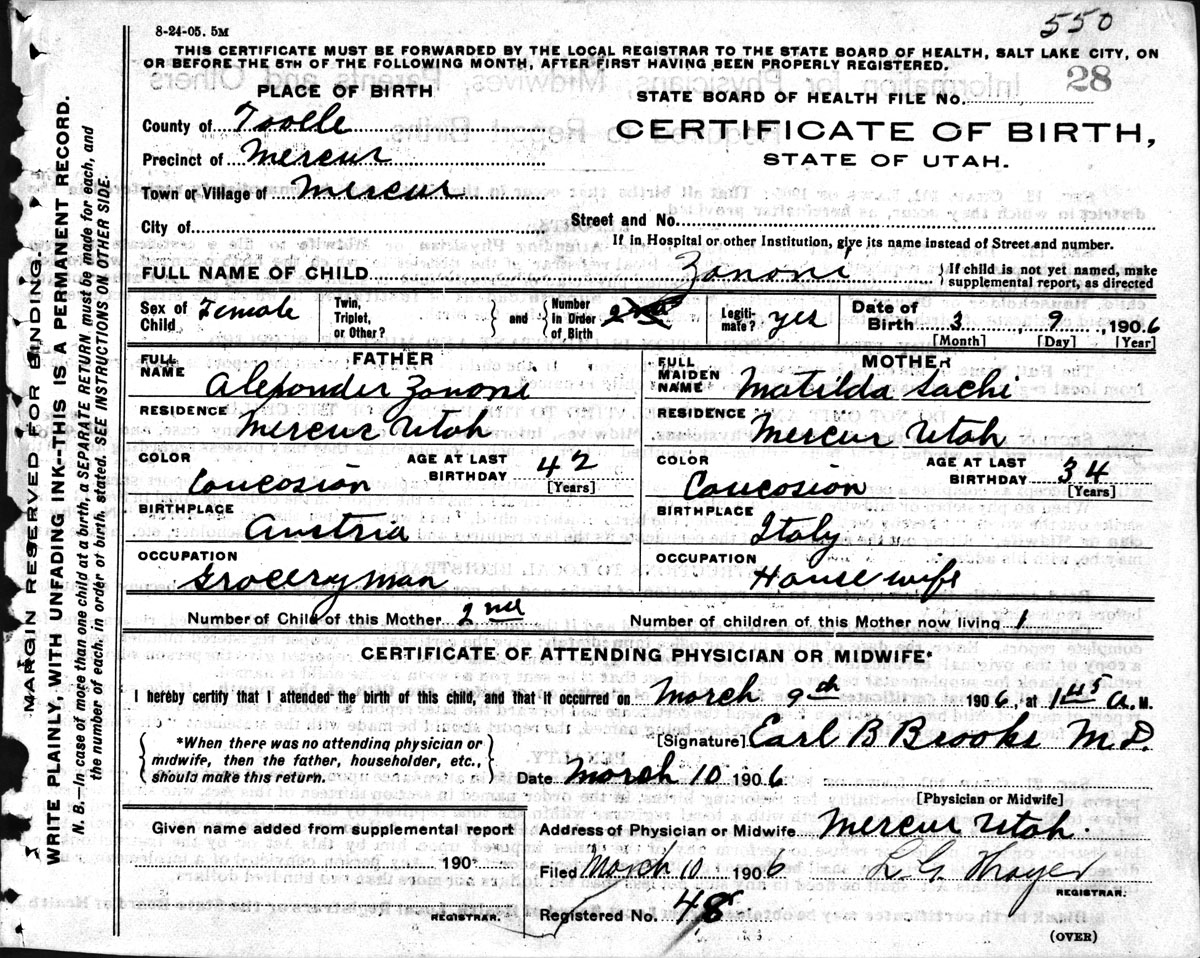 8-24-05. 5M
550
THIS CERTIFICATE MUST BE FORWARDED BY THE LOCAL REGISTRAR TO THE STATE BOARD OF HEALTH, SALT LAKE CITY, ON
OR BEFORE THE 5TH OF THE FOLLOWING MONTH, AFTER FIRST HAVING BEEN PROPERLY REGISTERED.
PLACE OF BIRTH
STATE BOARD OF HEALTH FILE No. 28
County of Tooele
CERTIFICATE OF BIRTH,
Precinct of Mercur
STATE OF UTAH.
Town or Village of Mercur
City of
Street and No.
If in Hospital or other Institution, give its name instead of Street and number.
FULL NAME OF CHILD Zanoni { If child is not yet named, make supplemental report, as directed
Sex of Child Female Twin, Triplet, or Other? } and { Number in Order of Birth 2nd Legitimate? yes Date of Birth 3, 9, 1906
[Month] [Day] [Year]
FATHER MOTHER
FULL NAME Alexander Zanoni FULL MAIDEN NAME Matilda Sachi
RESIDENCE RESIDENCE
Mercur Utah Mercur Utah
COLOR AGE AT LAST BIRTHDAY 42 COLOR AGE AT LAST BIRTHDAY 34
Caucasian [Years] Caucasian [Years]
BIRTHPLACE BIRTHPLACE
Austria Italy
OCCUPATION OCCUPATION
Grocery man House wife
Number of Child of this Mother 2nd Number of children of this Mother now living 1
CERTIFICATE OF ATTENDING PHYSICIAN OR MIDWIFE*
I hereby certify that I attended the birth of this child, and that it occurred on March 9th 1906, at 1 45 A. M.
{ *When there was no attending physician or midwife, then the father, householder, etc., should make this return. }
[Signature] Earl B Brooks M D.
Date March 10 1906
[Physician or Midwife]
Given name added from supplemental report
Address of Physician or Midwife Mercur Utah.
190 .
Filed March 10 1906 L. G. Thayer
REGISTRAR.
REGISTRAR.
Registered No. 48
(OVER)
MARGIN RESERVED FOR BINDING.
WRITE PLAINLY, WITH UNFADING INK--THIS IS A PERMANENT RECORD.
N. B.—In case of more than one child at a birth, a SEPARATE RETURN must be made for each, and
the number of each, in order of birth stated. SEE INSTRUCTIONS ON OTHER SIDE.